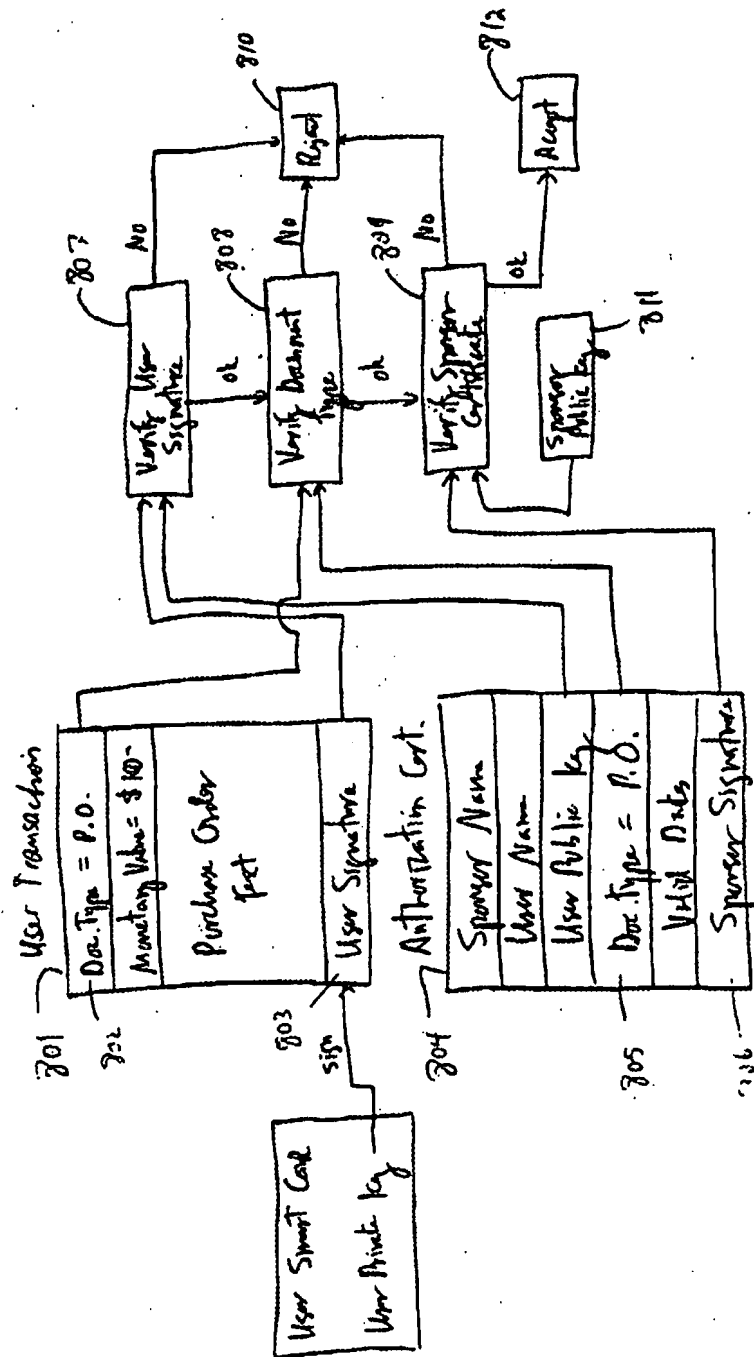 User Smart Card
User Private Key
sign
801
User Transaction
802
Doc. Type = P.O.
Monetary Value =
Purchase Order
Text
803
User Signature
804
Authorization Cert.
Sponsor Name
User Name
User Public Key
805
Doc. Type = P.O.
Valid Dates
Sponsor Signature
807
Verify User
Signature
No
OK
808
Verify Document
Type
No
OK
809
Verify Sponsor
Certificate
No
OK
810
Reject
811
Sponsor
Public Key
812
Accept